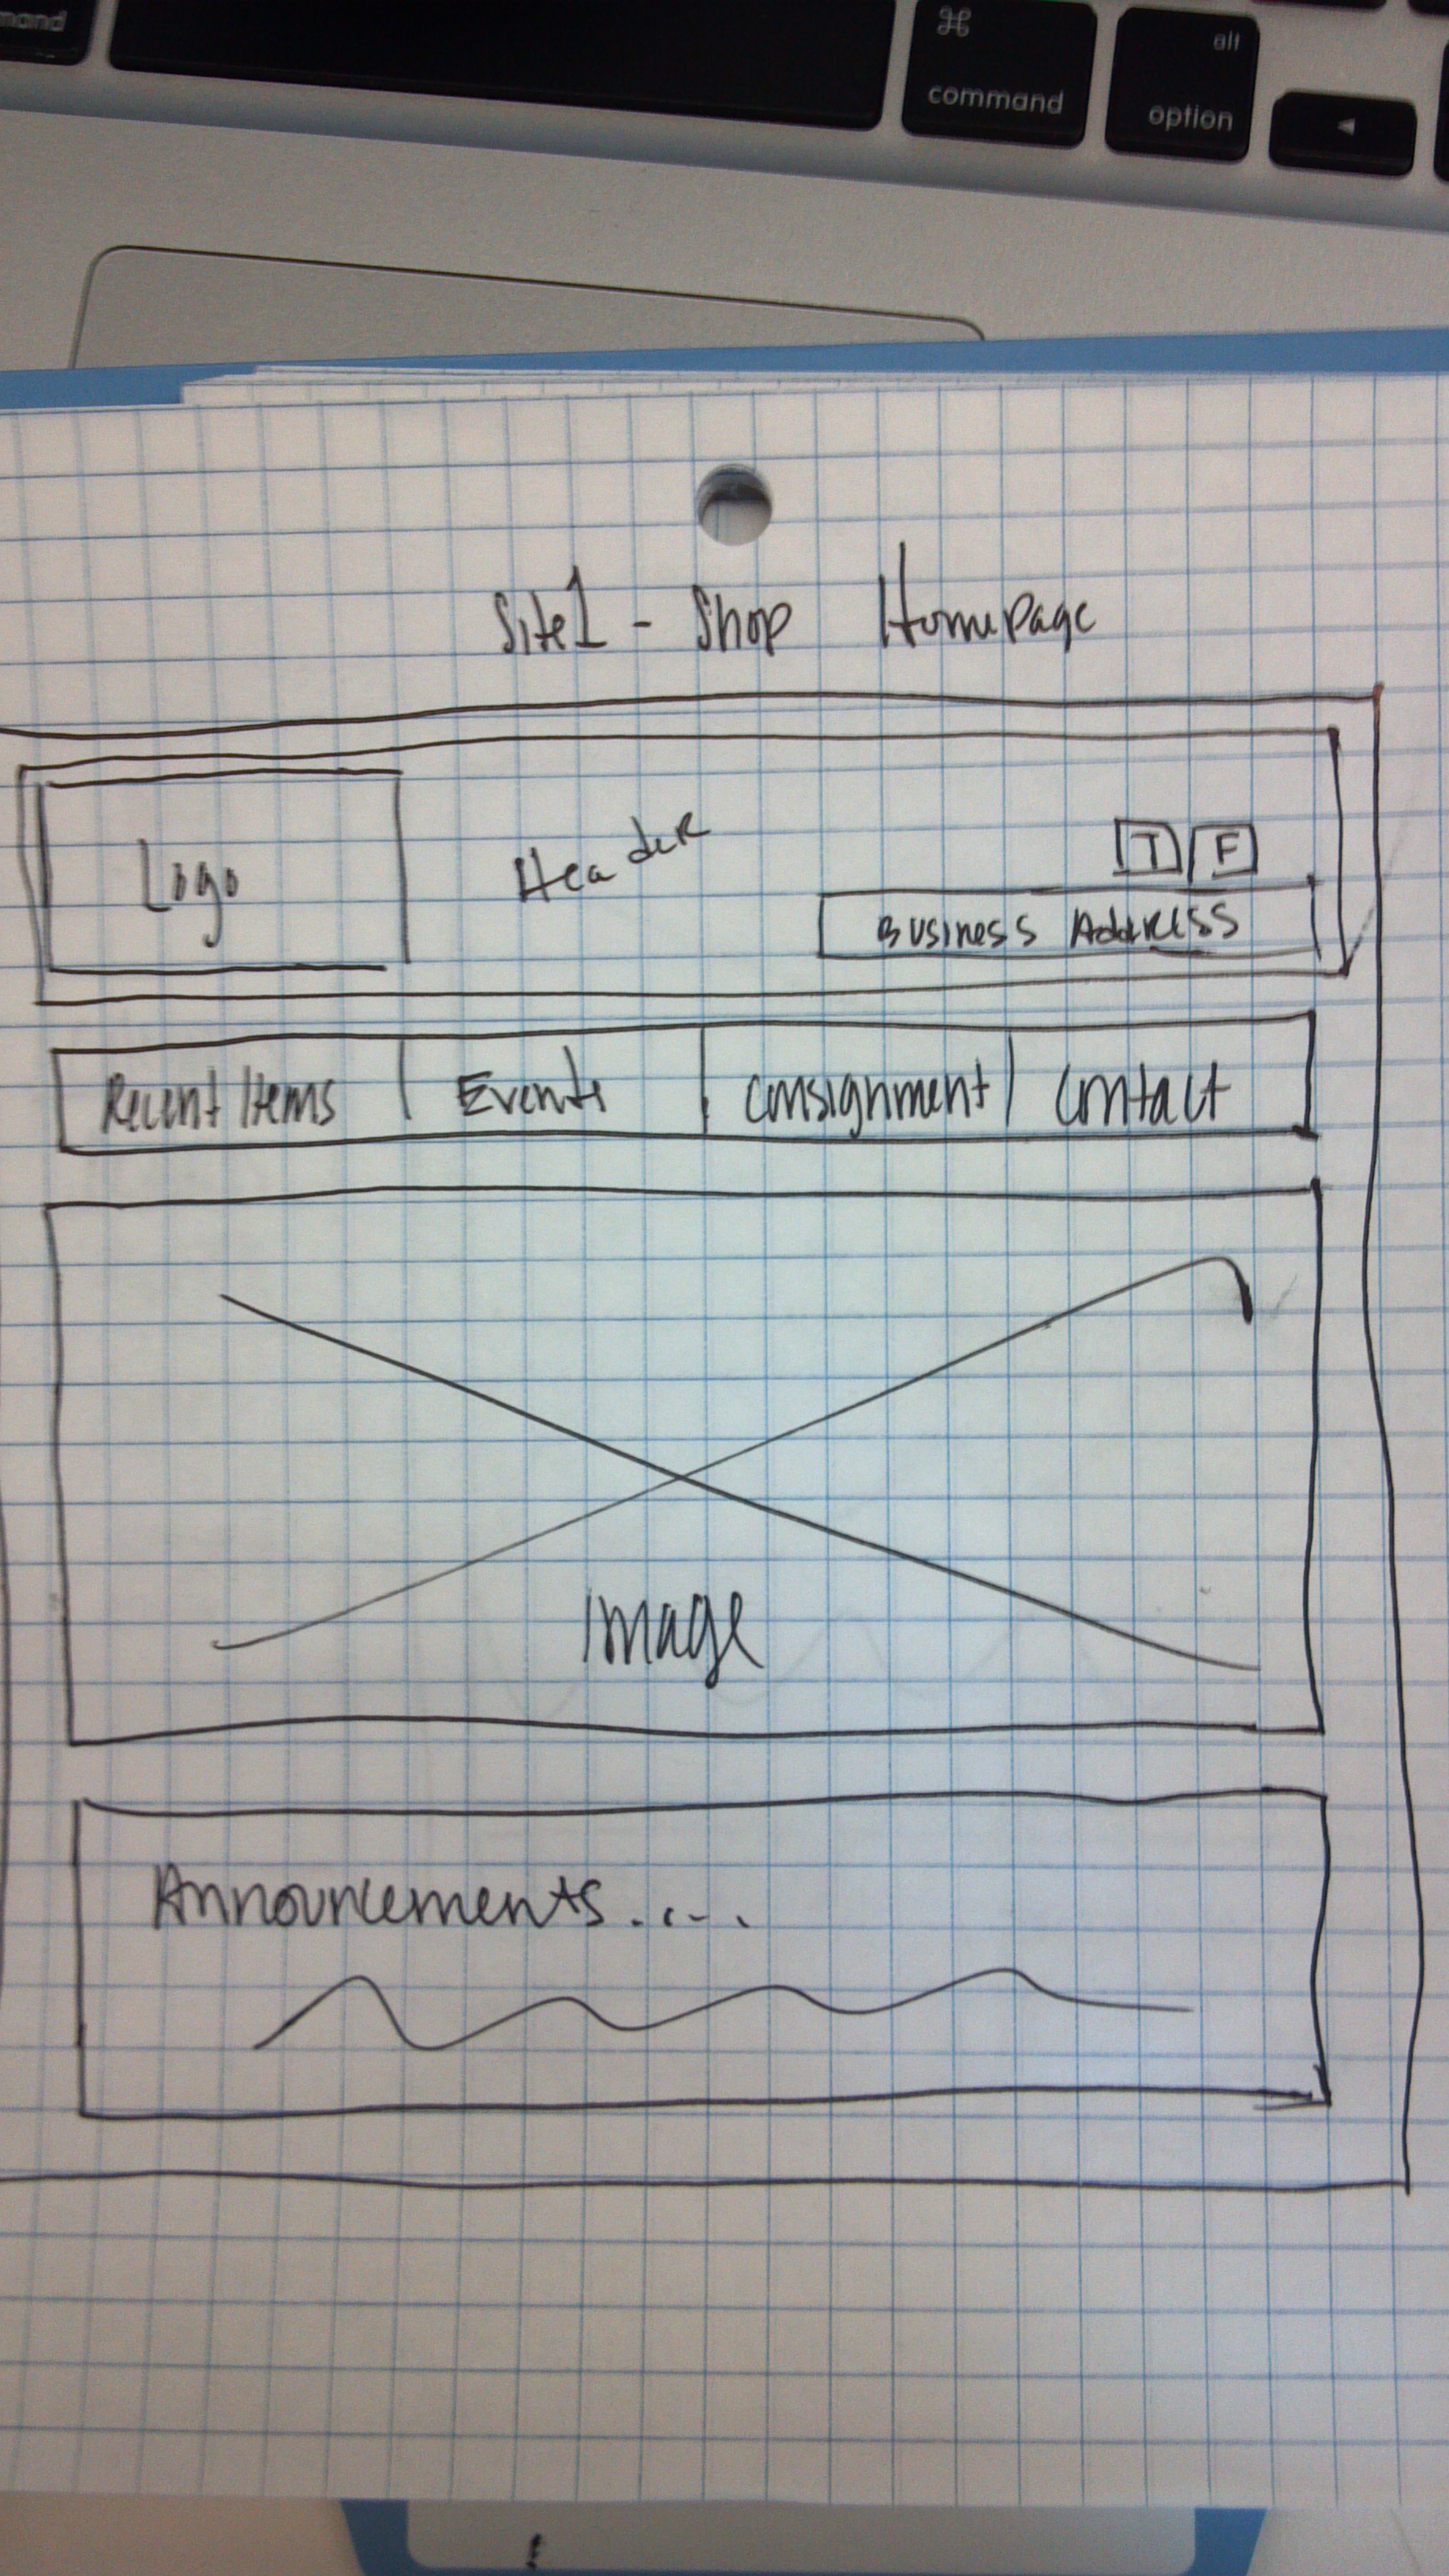 mand
⌘
command
alt
option
Site1 - Shop HomePage
Logo
Header
T F
Business Address
Recent Items Events Consignment Contact
Image
Announcements....